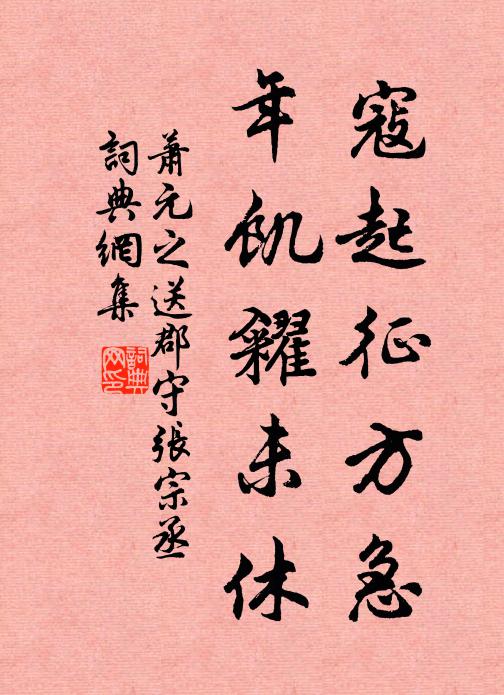 寇起征方急
年飢糴未休
蕭元之送郡守張宗丞
詞典網集
詞典
网印